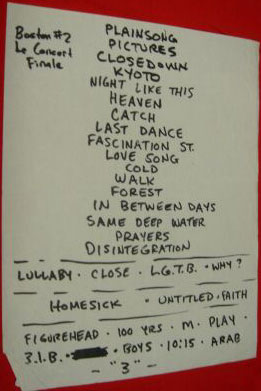 Boston #2
Le Concert
Finale
PLAINSONG
PICTURES
CLOSEDOWN
KYOTO
NIGHT LIKE THIS
HEAVEN
CATCH
LAST DANCE
FASCINATION ST.
LOVE SONG
COLD
WALK
FOREST
IN BETWEEN DAYS
SAME DEEP WATER
PRAYERS
DISINTEGRATION
LULLABY · CLOSE · L.G.T.B. · WHY?
HOMESICK · UNTITLED · FAITH
FIGUREHEAD · 100 YRS · M · PLAY ·
3.I.B. · BOYS · 10:15 · ARAB
- "3" -